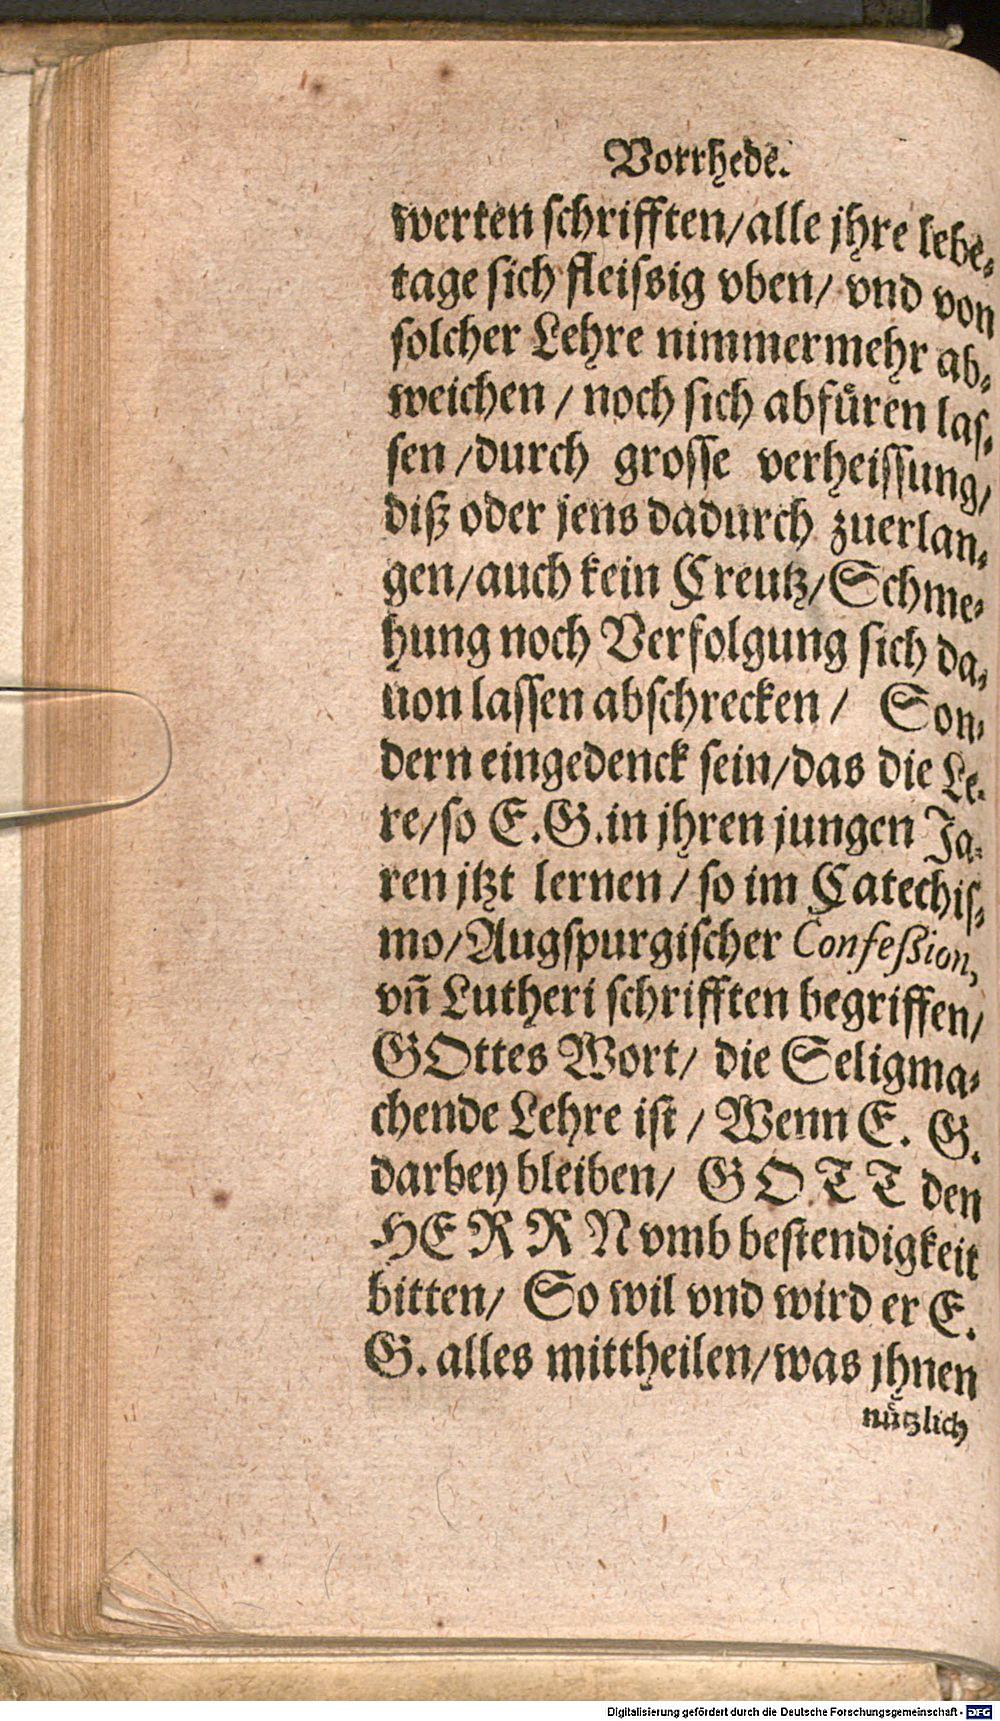 Vorrhede.
werten schrifften/alle jhre lebe-
tage sich fleissig vben/ vnd von
solcher Lehre nimmermehr ab-
weichen / noch sich abfüren las-
sen /durch grosse verheissung/
diß oder jens dadurch zuerlan-
gen/auch kein Creutz/Schme-
hung noch Verfolgung sich da-
uon lassen abschrecken / Son-
dern eingedenck sein/das die Le-
re/so E.G.in jhren jungen Ja-
ren jtzt lernen/ so im Catechis-
mo/Augspurgischer Confeßion,
vñ Lutheri schrifften begriffen/
GOttes Wort/ die Seligma-
chende Lehre ist / Wenn E. G.
darbey bleiben/ GOTT den
HERRN vmb bestendigkeit
bitten/ So wil vnd wird er E.
G. alles mittheilen/was jhnen
nützlich
Digitalisierung gefördert durch die Deutsche Forschungsgemeinschaft - DFG